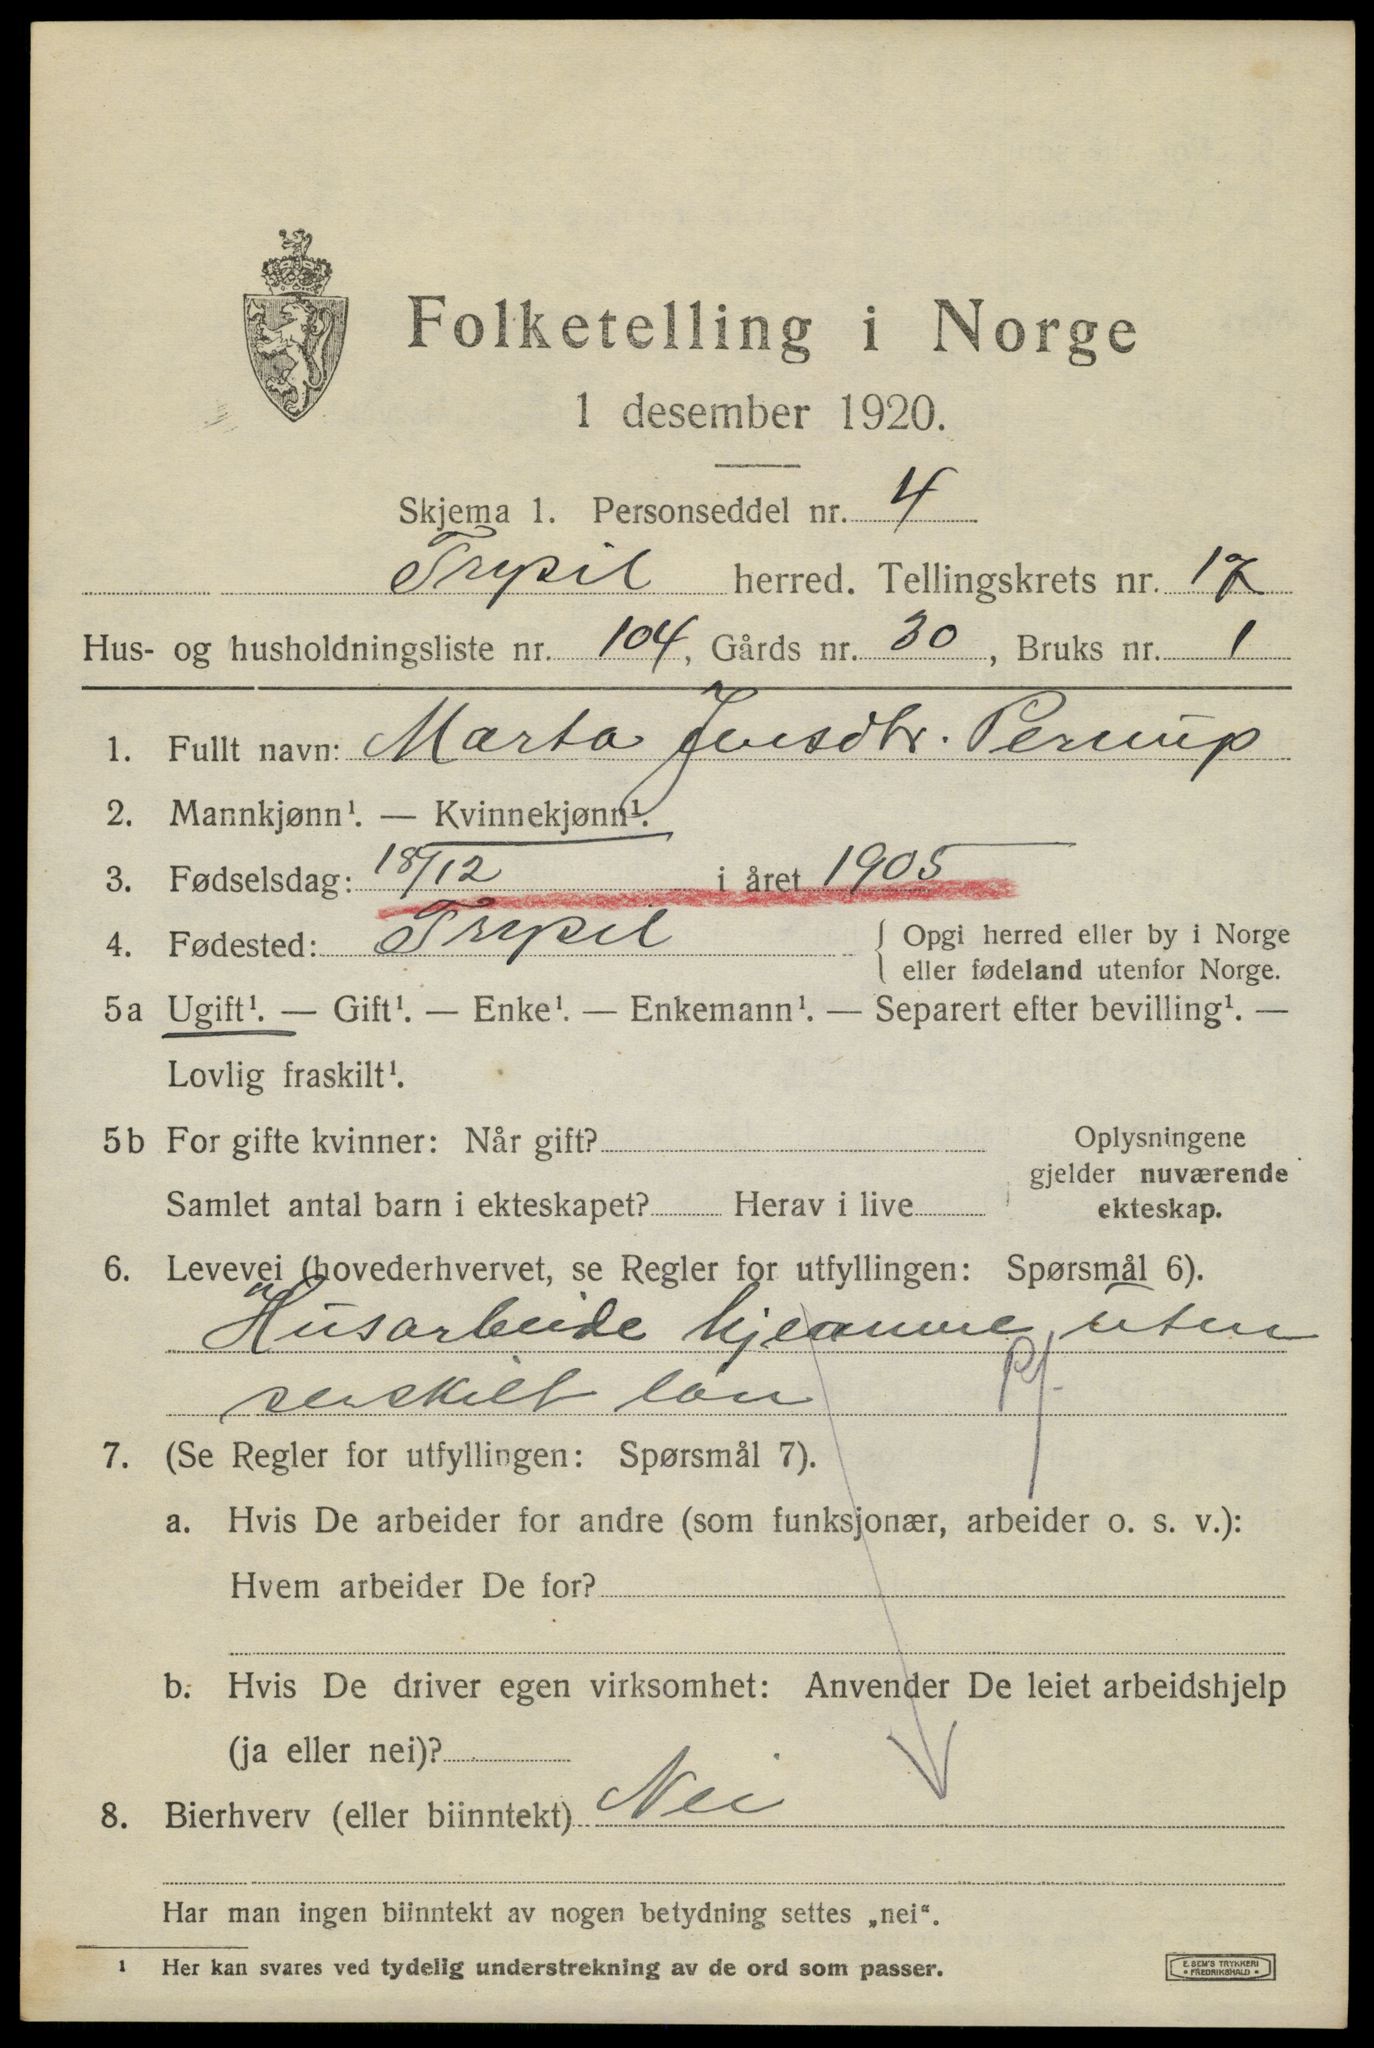 Folketelling i Norge
1 desember 1920.
Skjema 1. Personseddel nr. 4
Trysil herred. Tellingskrets nr. 17
Hus- og husholdningsliste nr. 104, Gårds nr. 30, Bruks nr. 1
1. Fullt navn: Marta Jensdtr.
2. Mannkjønn¹. — Kvinnekjønn¹.
3. Fødselsdag: 18/12 i året 1905
4. Fødested: Trysil { Opgi herred eller by i Norge
eller fødeland utenfor Norge.
5a Ugift¹. — Gift¹. — Enke¹. — Enkemann¹. — Separert efter bevilling¹. —
Lovlig fraskilt¹.
5b For gifte kvinner: Når gift?
Samlet antal barn i ekteskapet? Herav i live
Oplysningene
gjelder nuværende
ekteskap.
6. Levevei (hovederhvervet, se Regler for utfyllingen: Spørsmål 6).
Husarbeide hjemme uten
serskilt løn
7. (Se Regler for utfyllingen: Spørsmål 7).
a. Hvis De arbeider for andre (som funksjonær, arbeider o. s. v.):
Hvem arbeider De for?
b. Hvis De driver egen virksomhet: Anvender De leiet arbeidshjelp
(ja eller nei)?
8. Bierhverv (eller biinntekt) Nei
Har man ingen biinntekt av nogen betydning settes „nei“.
¹ Her kan svares ved tydelig understrekning av de ord som passer.
E. SEM'S TRYKKERI
• FREDRIKSHALD •